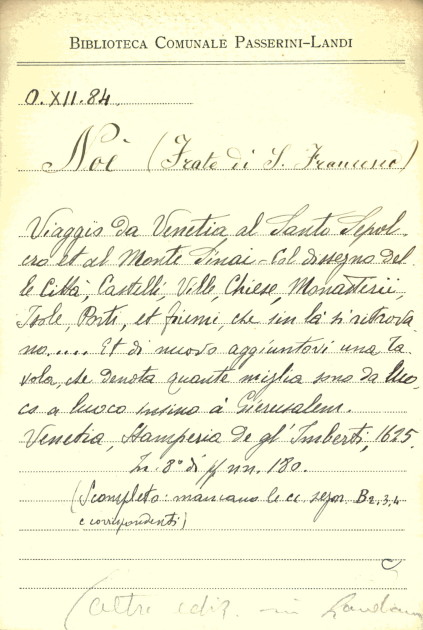 BIBLIOTECA COMUNALE PASSERINI-LANDI
O.XII.84.
Noè (Frate di S. Francesco)
Viaggio da Venetia al Santo Sepol-
cro et al Monte Sinai - Col dissegno del-
le Città, Castelli, Ville, Chiese, Monasterii,
Isole, Porti, et fiumi, che sin là si ritrova-
no.... Et di nuovo aggiuntovi una Ta-
vola, che denota quante miglia sono da luo-
co a luoco insino à Gierusalem.
Venetia, Stamperia de gl' Imberti, 1625.
In 8° di ff nn. 180.
(Scompleto: mancano le cc. segn. B2,3,4
e corrispondenti)
(altre ediz. in Landiana